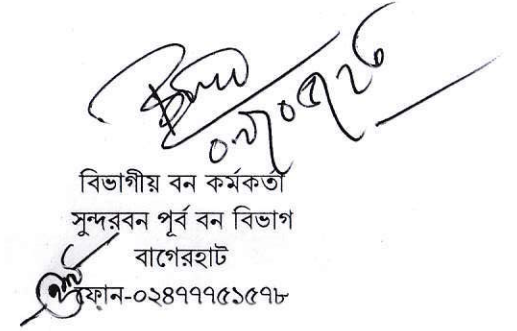 বিভাগীয় বন কর্মকর্তা
সুন্দরবন পূর্ব বন বিভাগ
বাগেরহাট
ফোন-০২৪৭৭৭৫১৫৭৮